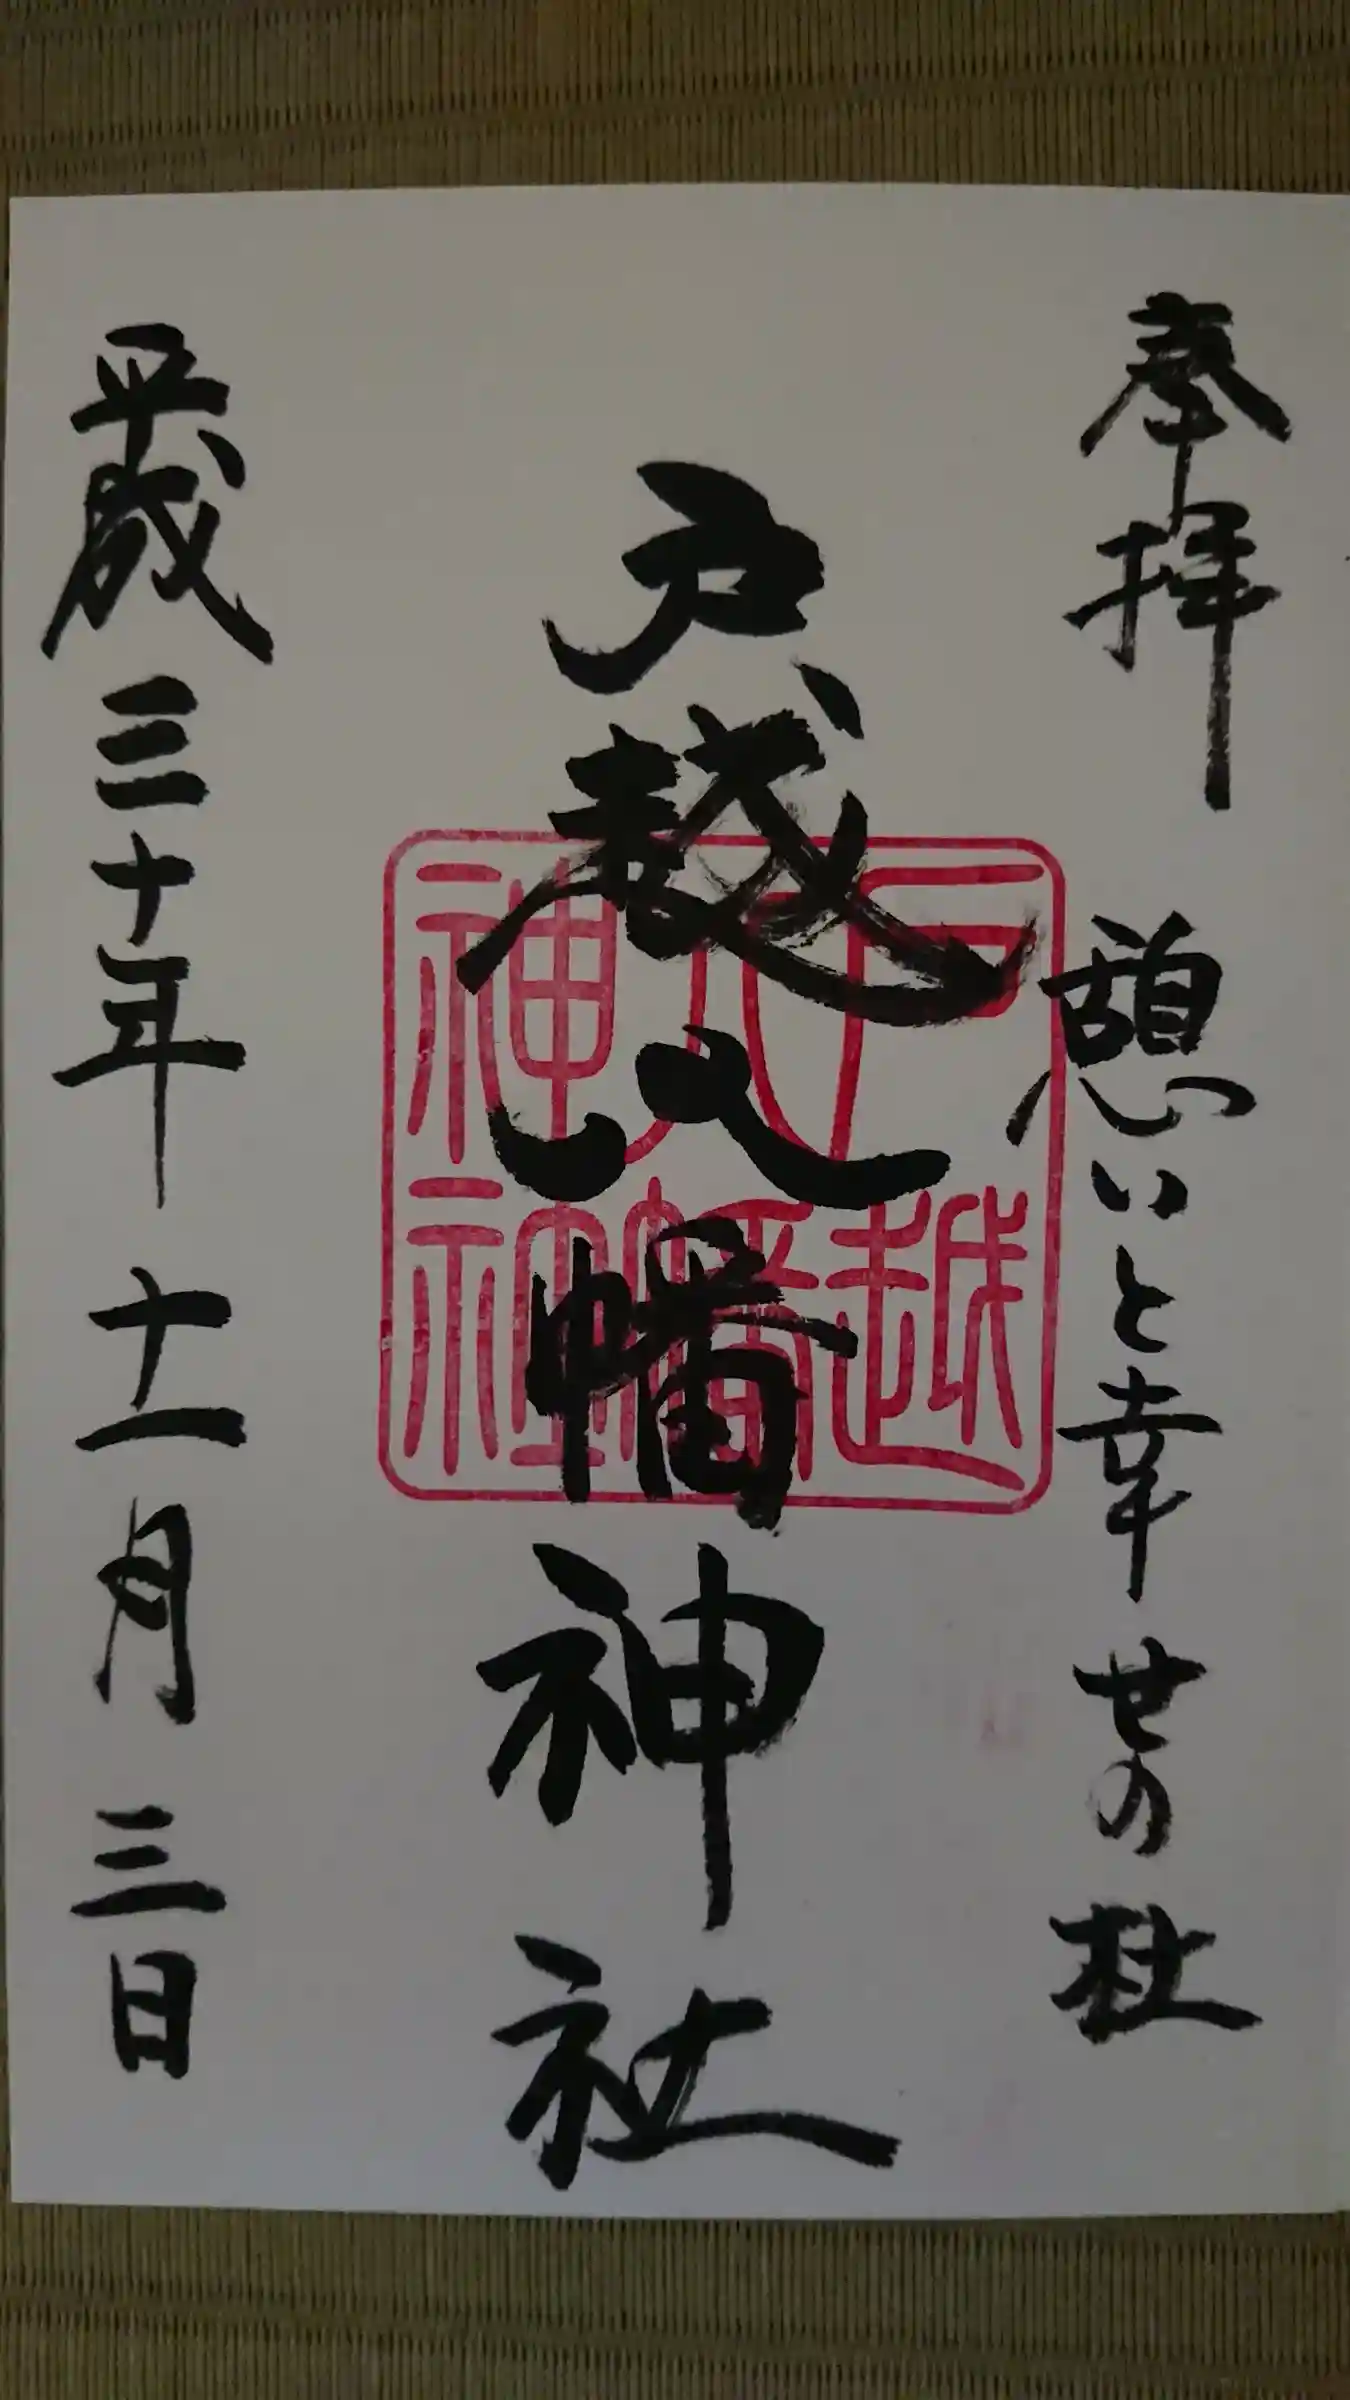 奉拝 憩いと幸せの杜
戸越八幡神社
平成三十年十一月三日
戸越
八幡
神社